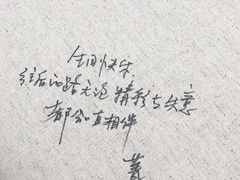 生日快乐
往后的路无论精彩与失意
都会互相伴